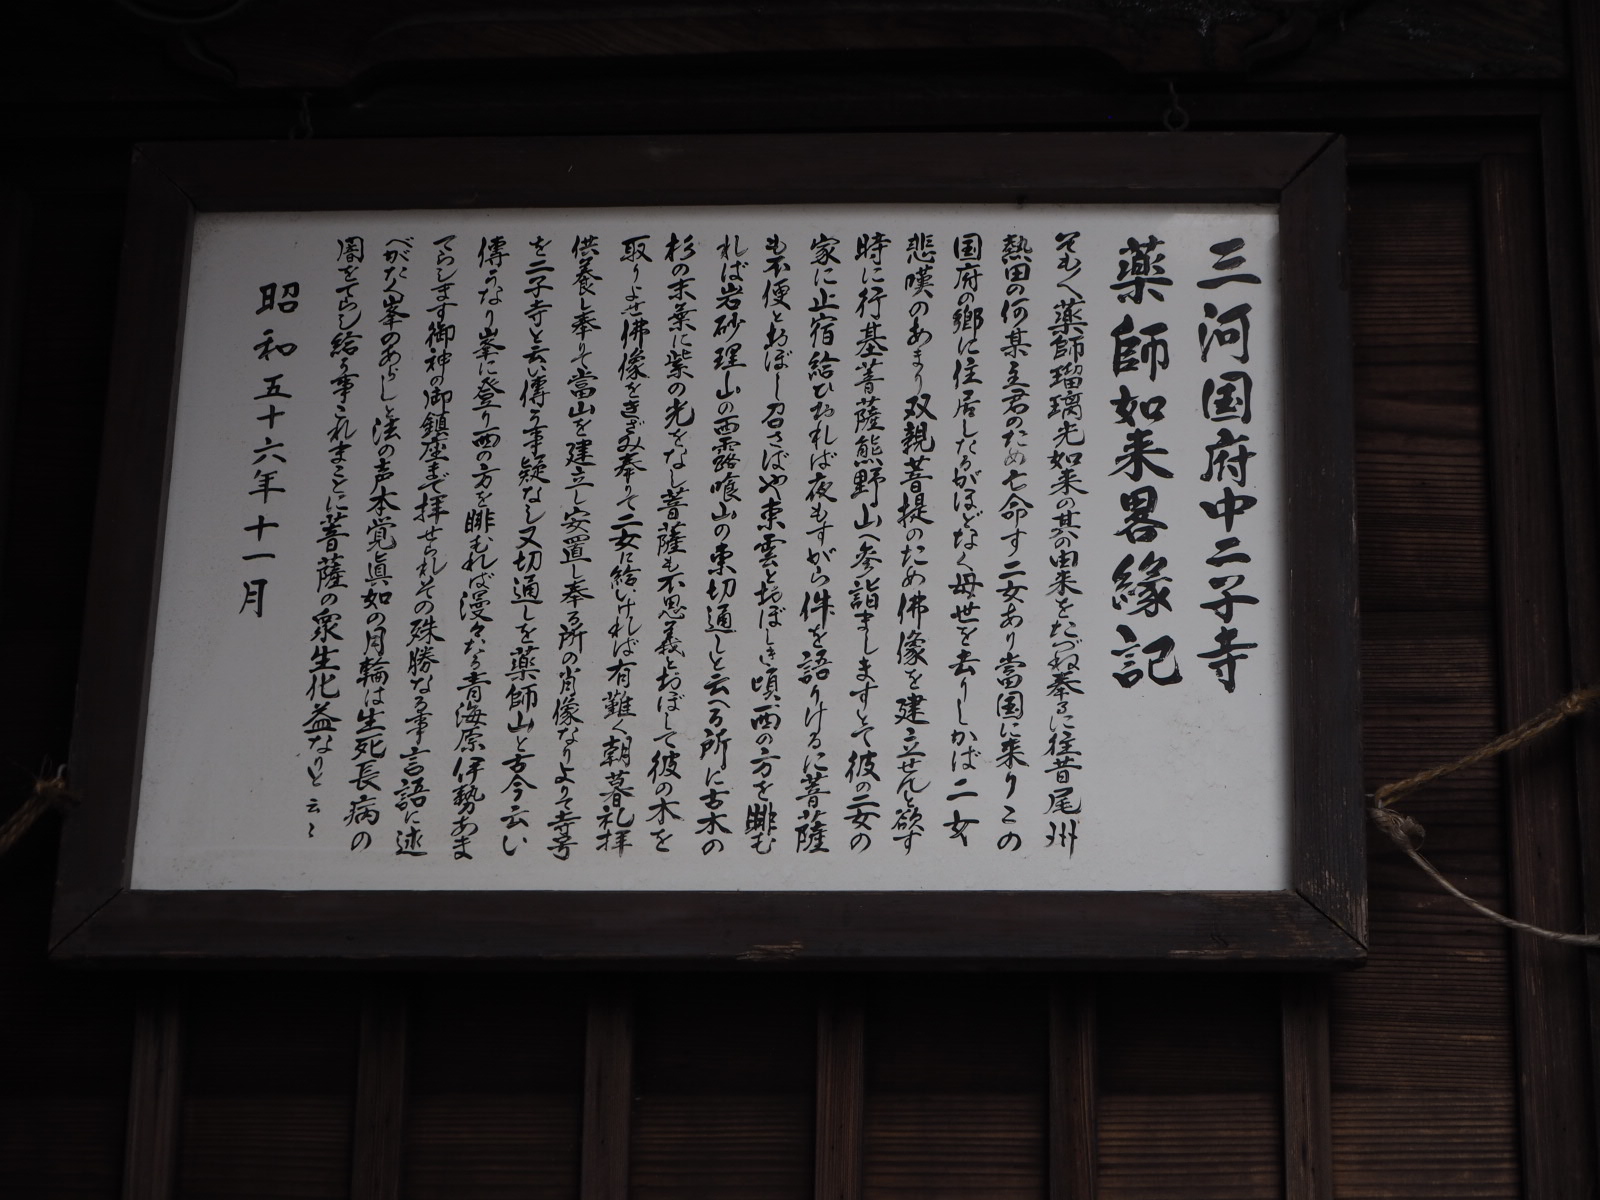 三河国府中二子寺
薬師如来畧縁記
そもそも薬師瑠璃光如来の其の由来をたづね奉るに往昔尾州
熱田の何某主君のため亡命す二女あり當国に来りこの
国府の郷に住居したるがほどなく母世を去りしかば二女
悲嘆のあまり双親菩提のため佛像を建立せんと欲す
時に行基菩薩熊野山へ参詣ましますとて彼の二女の
家に止宿給ひおれば夜もすがら件を語りけるに菩薩
も不便とおぼし召さばや東雲とおぼしき頃西の方を眺む
れば岩砂理山の西露喰山の東切通しと云へる所に古木の
杉の末葉に紫の光をなし菩薩も不思義とおぼして彼の木を
取りよせ佛像をきざみ奉りて二女に給いければ有難く朝暮礼拝
供養し奉りて當山を建立し安置し奉る所の肖像なりよりて寺号
を二子寺と云い傳う事疑なし又切通しを薬師山と古今云い
傳うなり峯に登り西の方を眺むれば漫々たる青海原伊勢あま
てらします御神の御鎮座まで拝せられその殊勝なる事言語に述
べがたく峯のあらしと法の声本覚眞如の月輪は生死長病の
闇をてらし給う事これまことに菩薩の衆生化益なりと云々
昭和五十六年十一月